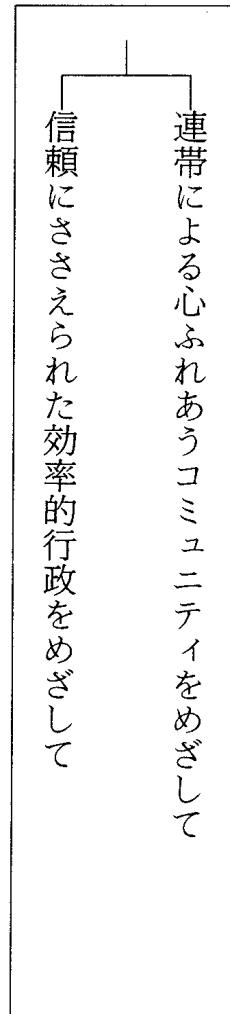 連帯による心ふれあうコミュニティをめざして
信頼にささえられた効率的行政をめざして